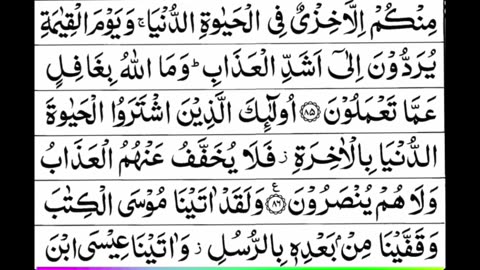 مِنْكُمْ اِلَّا خِزْیٌ فِی الْحَیٰوةِ الدُّنْیَا ۚ وَیَوْمَ الْقِیٰمَةِ
یُرَدُّوْنَ اِلٰۤی اَشَدِّ الْعَذَابِ ؕ وَمَا اللّٰهُ بِغَافِلٍ
عَمَّا تَعْمَلُوْنَ ﴿۸۵﴾ اُولٰٓئِكَ الَّذِیْنَ اشْتَرَوُا الْحَیٰوةَ
الدُّنْیَا بِالْاٰخِرَةِ ز فَلَا یُخَفَّفُ عَنْهُمُ الْعَذَابُ
وَلَا هُمْ یُنْصَرُوْنَ ﴿۸۶﴾ ع وَلَقَدْ اٰتَیْنَا مُوْسَی الْكِتٰبَ
وَقَفَّیْنَا مِنْۢ بَعْدِهٖ بِالرُّسُلِ ز وَاٰتَیْنَا عِیْسَی ابْنَ